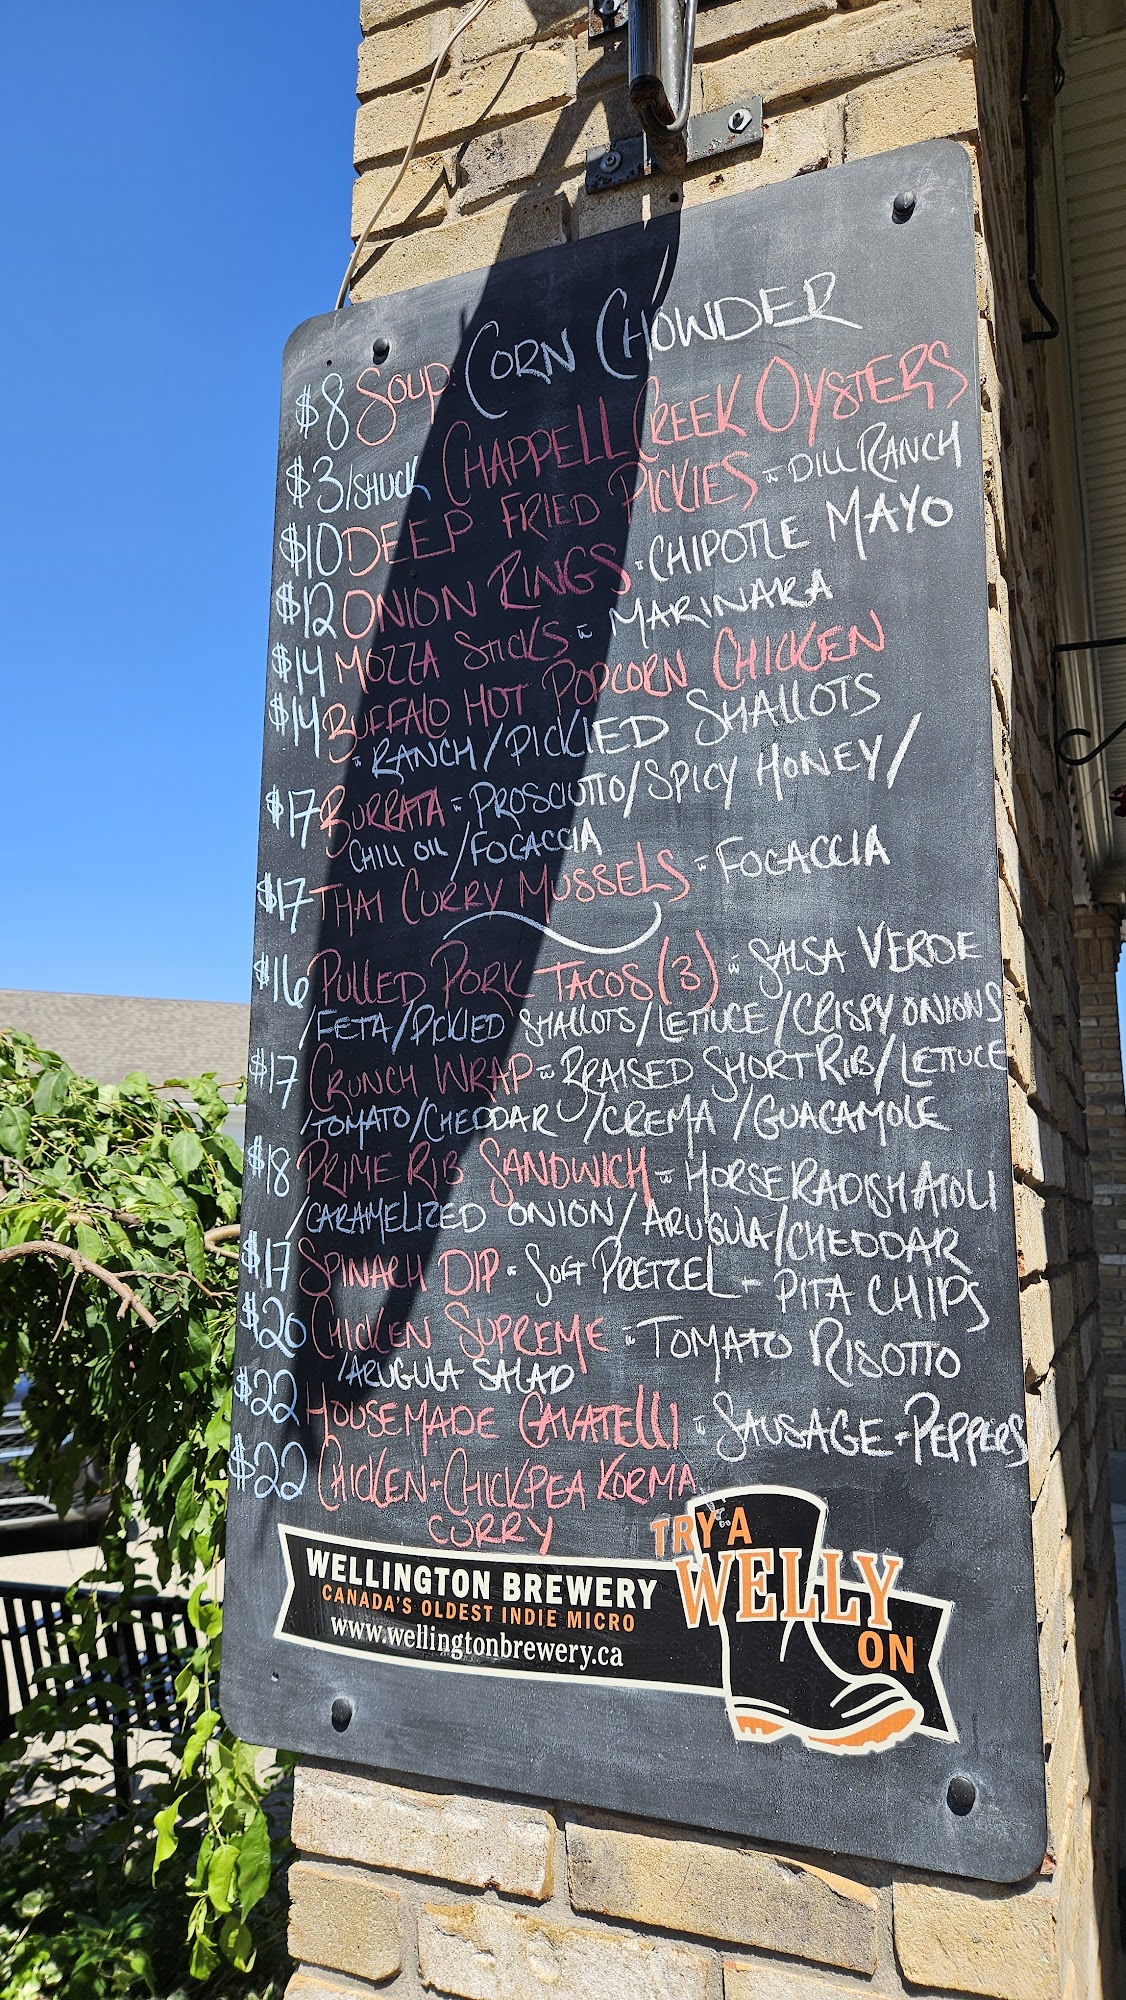 $8 SOUP. CORN CHOWDER
$3/SHUCK CHAPPELL CREEK OYSTERS
$10 DEEP FRIED PICKLES - DILL RANCH
$12 ONION RINGS - CHIPOTLE MAYO
$14 MOZZA STICKS - MARINARA
$14 BUFFALO HOT POPCORN CHICKEN
- RANCH/PICKLED SHALLOTS
$17 BURRATA - PROSCIUTTO/SPICY HONEY/
CHILI OIL/FOCACCIA
$17 THAI CURRY MUSSELS - FOCACCIA
$16 PULLED PORK TACOS (3) - SALSA VERDE
/FETA/PICKLED SHALLOTS/LETTUCE/CRISPY ONIONS
$17 CRUNCH WRAP - BRAISED SHORT RIB/LETTUCE
/TOMATO/CHEDDAR/CREMA/GUACAMOLE
$18 PRIME RIB SANDWICH - HORSERADISH AIOLI
/CARAMELIZED ONION/ARUGULA/CHEDDAR
$17 SPINACH DIP - SOFT PRETZEL - PITA CHIPS
$20 CHICKEN SUPREME - TOMATO RISOTTO
/ARUGULA SALAD
$22 HOUSEMADE CAVATELLI - SAUSAGE - PEPPERS
$22 CHICKEN - CHICKPEA KORMA
CURRY
TRY A
WELLY
ON
WELLINGTON BREWERY
CANADA'S OLDEST INDIE MICRO
www.wellingtonbrewery.ca